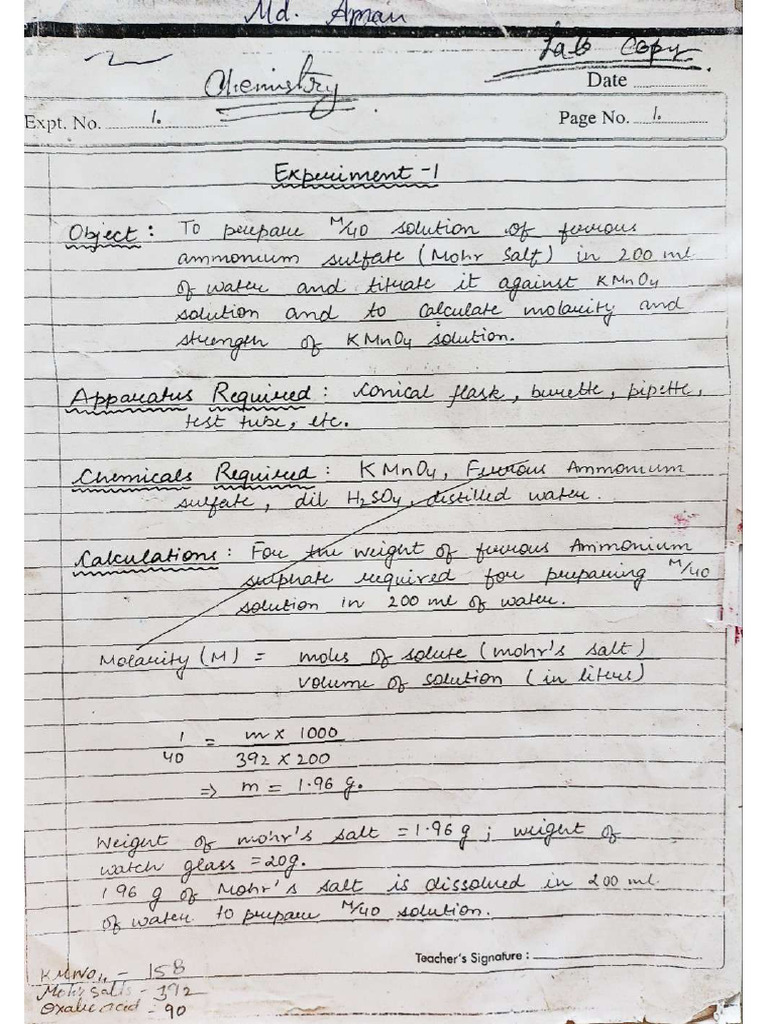 Md. Aman
Lab Copy
Chemistry
Date
Expt. No. 1.
Page No. 1.
Experiment -1
Object : To prepare M/40 solution of ferrous
ammonium sulfate (Mohr Salt) in 200 ml
of water and titrate it against KMnO4
solution and to calculate molarity and
strength of KMnO4 solution.
Apparatus Required : Conical flask, burette, pipette,
test tube, etc.
Chemicals Required : KMnO4, Ferrous Ammonium
sulfate, dil H2SO4, distilled water.
Calculations : For the weight of ferrous Ammonium
sulphate required for preparing M/40
solution in 200 ml of water.
Molarity (M) = moles of solute (mohr's salt)
volume of solution (in liters)
1 = m x 1000
40 392 x 200
⇒ m = 1.96 g.
Weight of mohr's salt = 1.96 g ; weight of
watch glass = 20g.
1.96 g of Mohr's salt is dissolved in 200 ml
of water to prepare M/40 solution.
Teacher's Signature :
KMNO4 - 158
Mohr salts - 392
Oxalic acid - 90